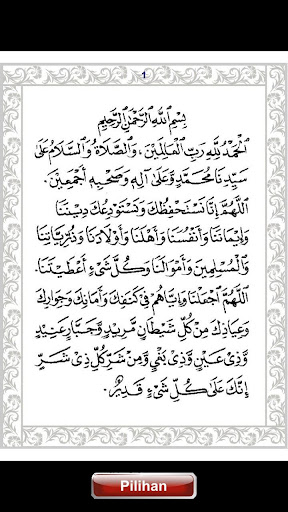 1
بِسْمِ اللَّهِ الرَّحْمٰنِ الرَّحِيْمِ
اَلْحَمْدُ لِلَّهِ رَبِّ الْعَالَمِيْنَ. وَالصَّلَاةُ وَالسَّلَامُ عَلَى
سَيِّدِنَا مُحَمَّدٍ وَّعَلَى آلِهِ وَصَحْبِهِ أَجْمَعِيْنَ.
اَللَّهُمَّ إِنَّا نَسْتَحْفِظُكَ وَنَسْتَوْدِعُكَ دِيْنَنَا
وَإِيْمَانَنَا وَأَنْفُسَنَا وَأَهْلَنَا وَأَوْلَادَنَا وَذُرِّيَّاتِنَا
وَالْمُسْلِمِيْنَ وَأَمْوَالَنَا وَكُلَّ شَيْءٍ أَعْطَيْتَنَا.
اَللَّهُمَّ اجْعَلْنَا وَإِيَّاهُمْ فِي كَنَفِكَ وَأَمَانِكَ وَجِوَارِكَ
وَعِيَاذِكَ مِنْ كُلِّ شَيْطَانٍ مَّرِيْدٍ وَّجَبَّارٍ عَنِيْدٍ
وَّذِيْ عَيْنٍ وَّذِيْ بَغْيٍ وَّمِنْ شَرِّ كُلِّ ذِيْ شَرٍّ
إِنَّكَ عَلَى كُلِّ شَيْءٍ قَدِيْرٌ.
Pilihan